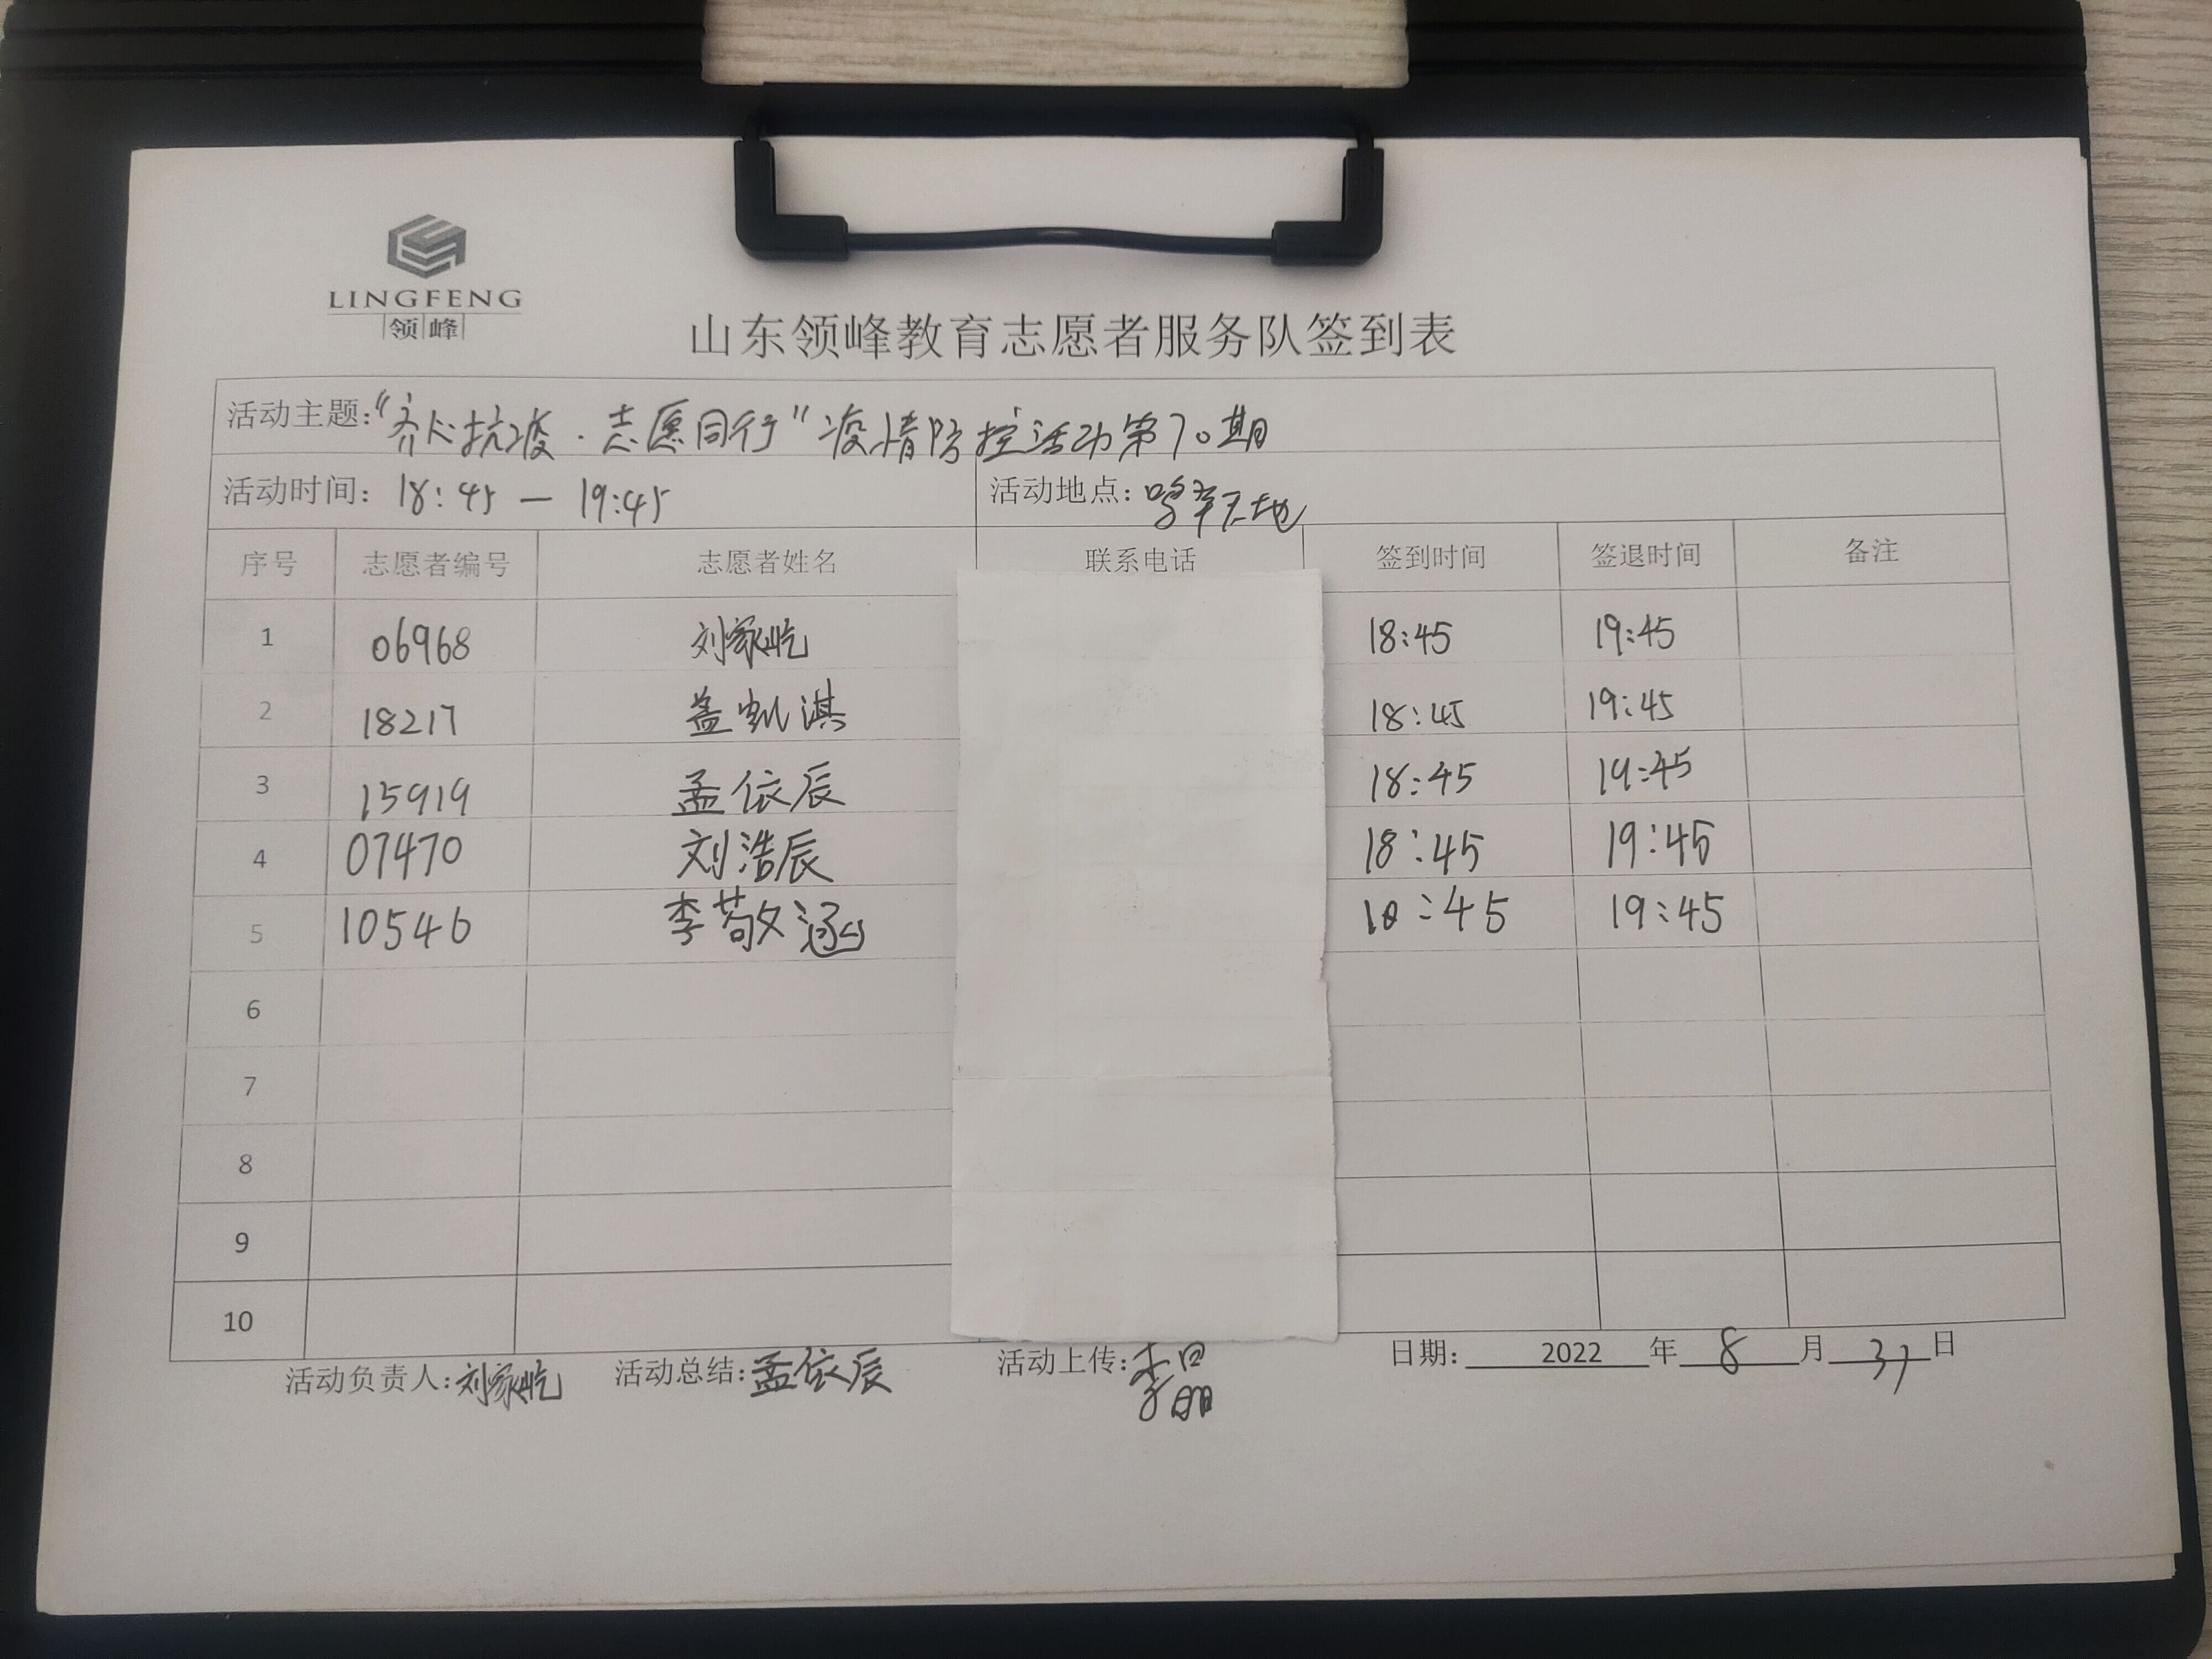 LINGFENG
领峰
山东领峰教育志愿者服务队签到表
活动主题:“齐心抗疫·志愿同行”疫情防控活动第70期
活动时间: 18:45 — 19:45 活动地点:
序号 志愿者编号 志愿者姓名 联系电话 签到时间 签退时间 备注
1 06968 刘家屹 18:45 19:45
2 18217 盖凯淇 18:45 19:45
3 15919 孟依辰 18:45 19:45
4 07470 刘浩辰 18:45 19:45
5 10546 李敬涵 18:45 19:45
6
7
8
9
10
活动负责人:刘家屹 活动总结:孟依辰 活动上传:李晶晶 日期: 2022 年 8 月 31 日